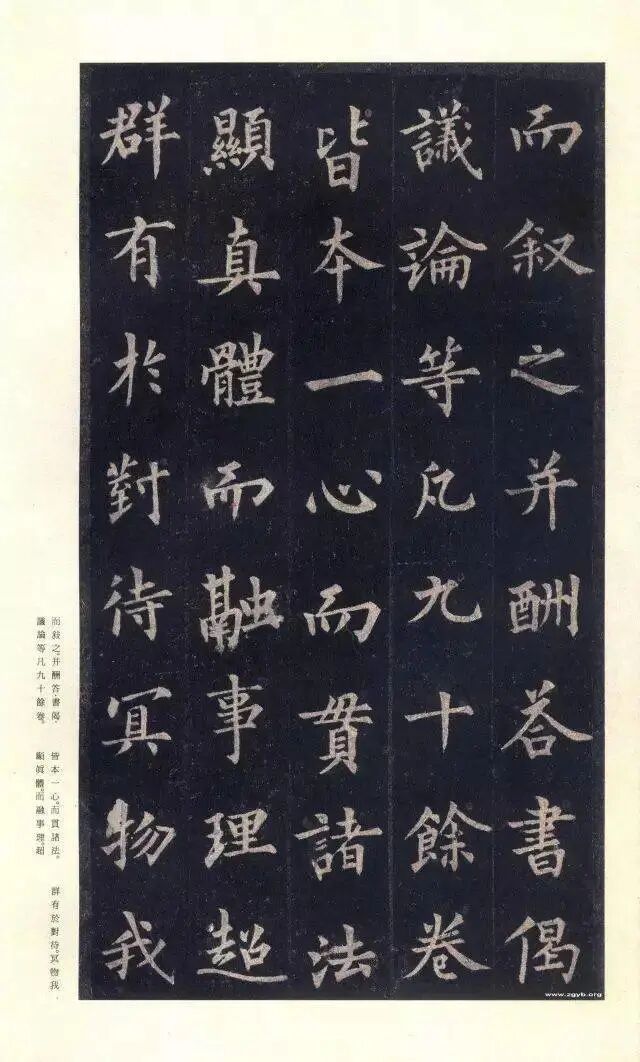 而叙之并酬荅書偈
議論等凡九十餘卷
皆本一心而貫諸法
顯真體而融事理超
群有於對待冥物我
而敍之。并酬答書偈。
議論等凡九十餘卷。
皆本一心。而貫諸法。
顯眞體。而融事理。超
群有於對待。冥物我。
www.zgyb.org